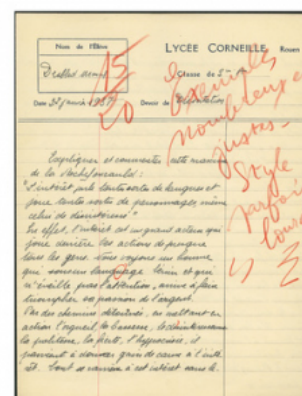 Nom de l'Élève
LYCÉE CORNEILLE, Rouen
15
20
Classe de
Date 1937
Devoir de
Exemples
nombreux et
justes -
Style
parfois
lourd
Expliquer et commenter cette maxime
de la Rochefoucauld :
"L'intérêt parle toutes sortes de langues et
joue toutes sortes de personnages, même
celui de désintéressé"
En effet, l'intérêt est un grand acteur qui
joue derrière les actions de presque
tous les gens. Nous voyons un homme
que son langage et qui
n'éveille pas l'attention, arrive à faire
triompher sa passion de l'argent.
Par des chemins détournés, en mettant en
action l'orgueil, la bassesse,
la politesse, la fierté, l'hypocrisie, il
parvient à donner gain de cause à l'inté
rêt. à cet intérêt sans le